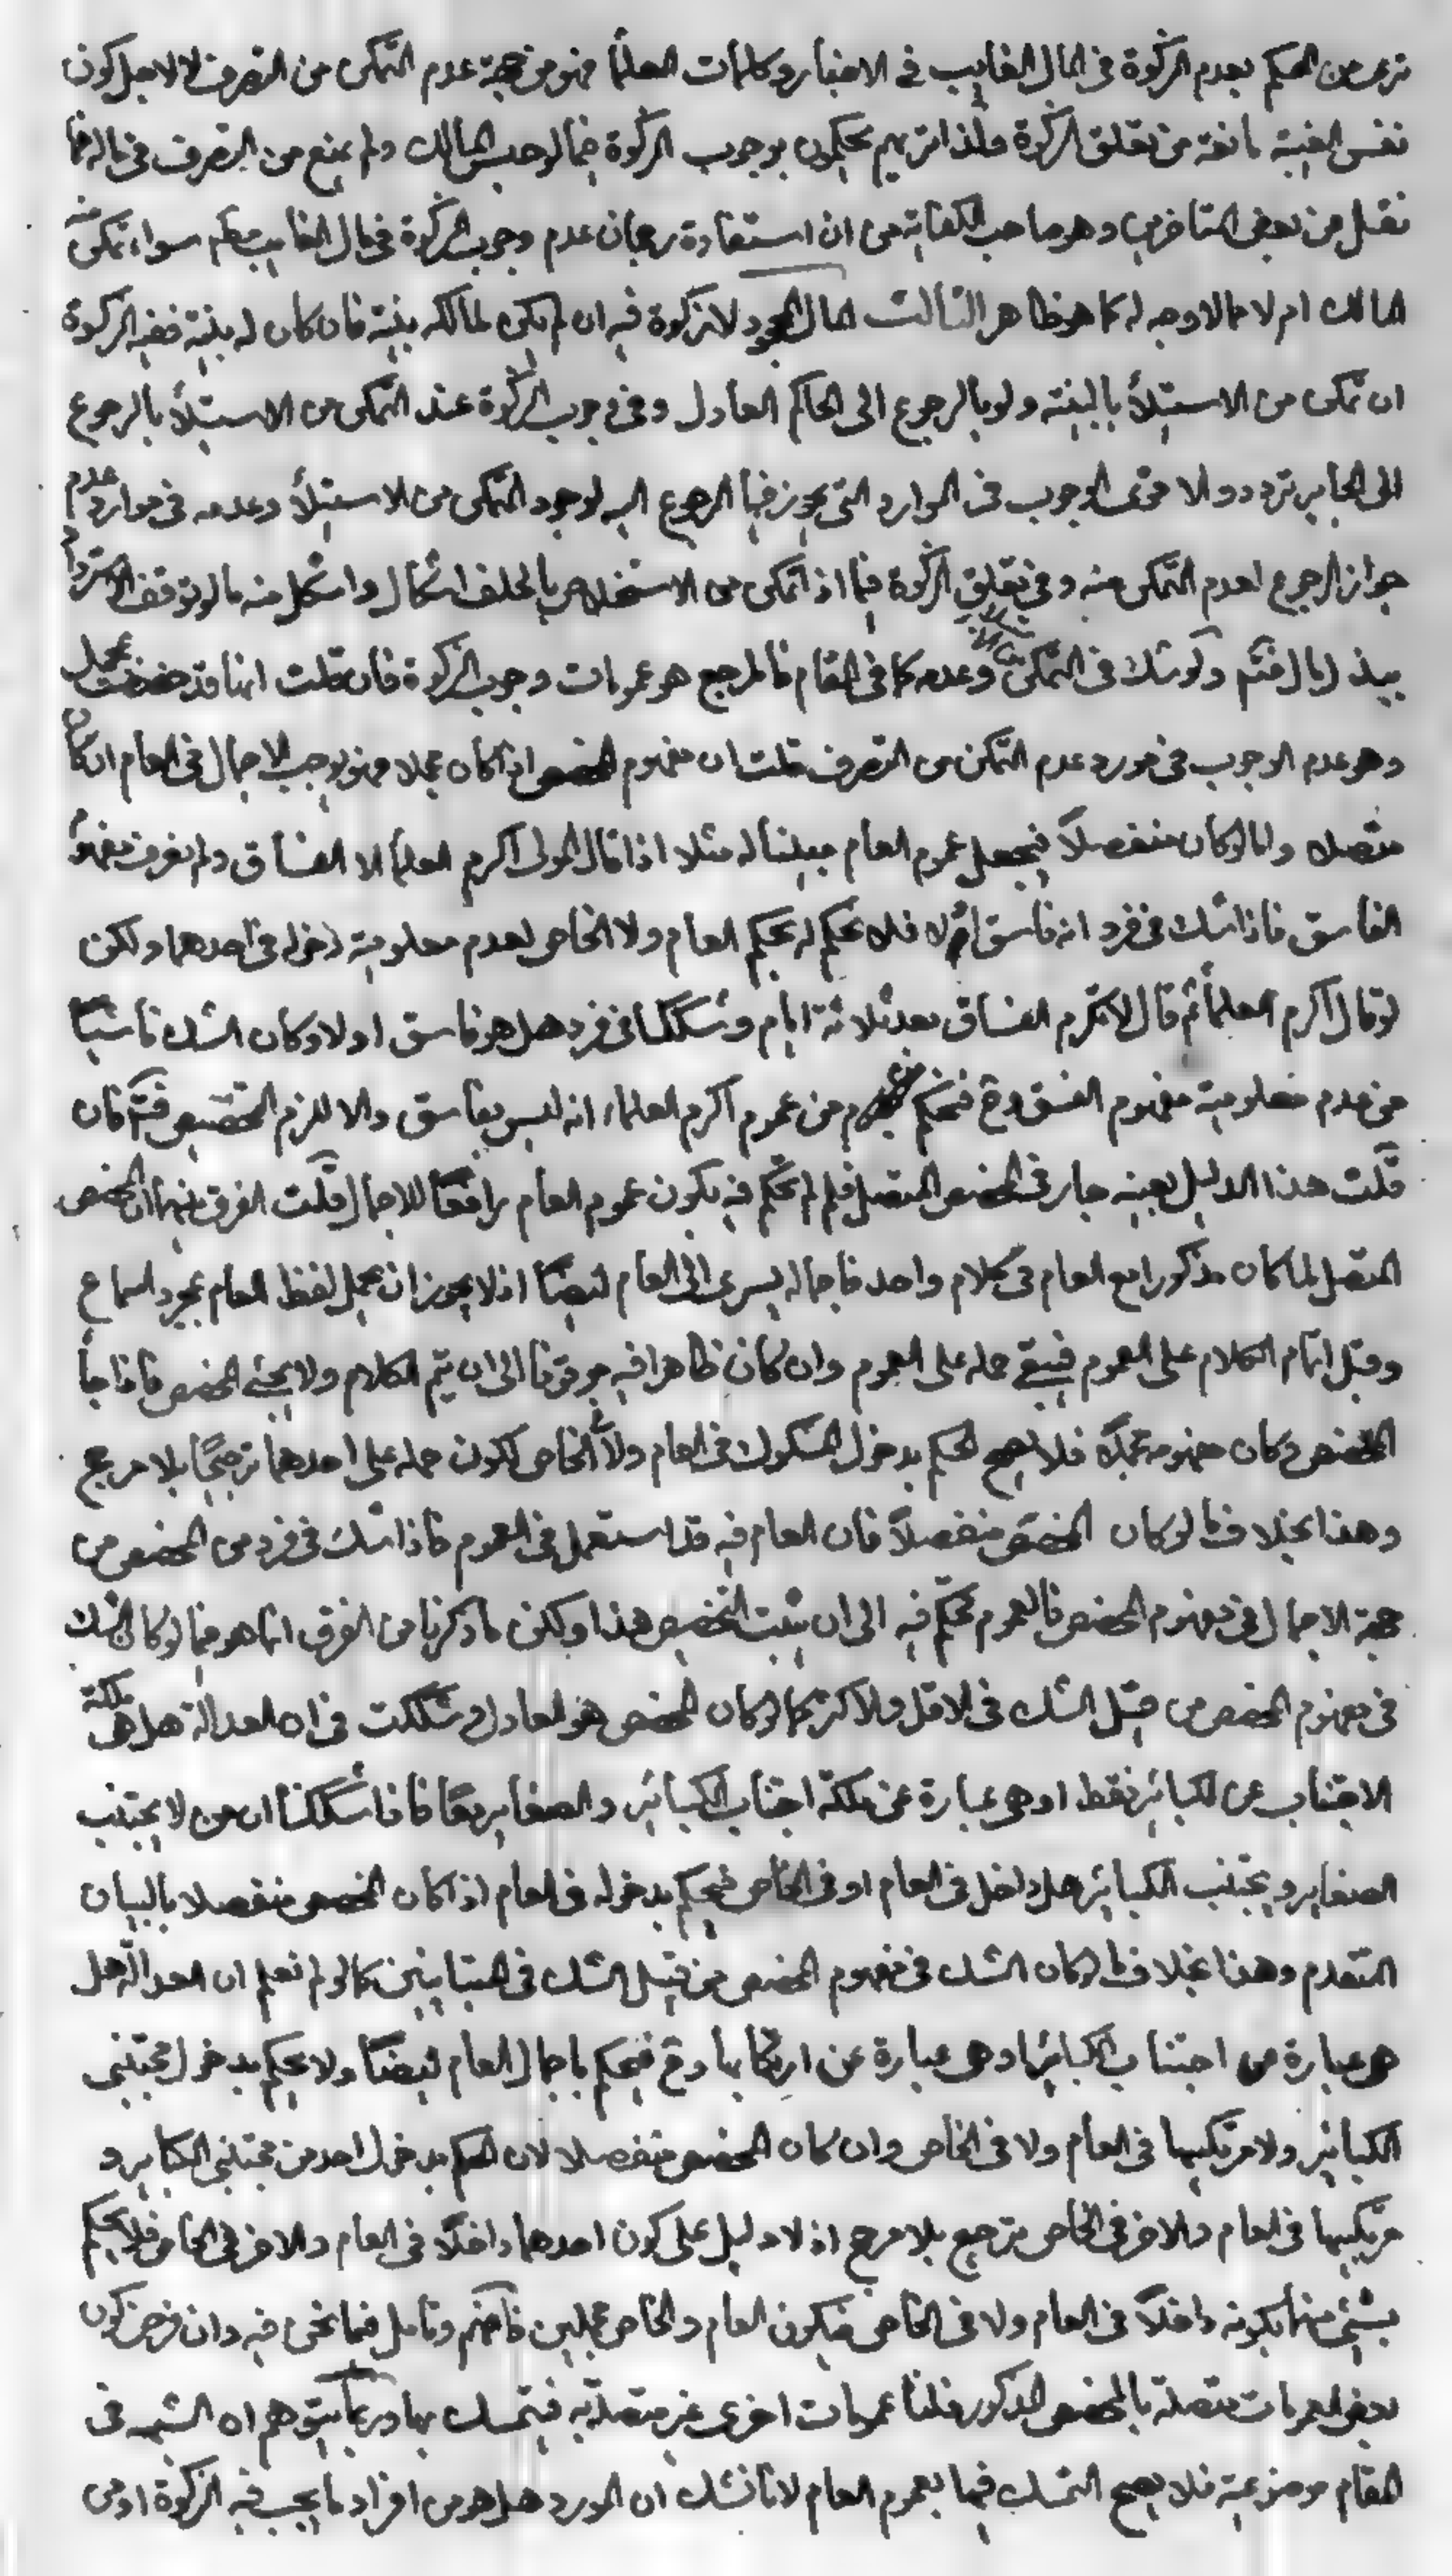 ترى من الحكم بعدم الزكوة فى المال الغايب فى الاخبار وكلمات العلماء فهو من جهة عدم التمكن من التصرف لا لاجل كون
نفس الغيبة مانعة من تعلق الزكوة ولذا تريهم يحكمون بوجوب الزكوة فيما لو حبس المالك ولم يمنع من التصرف فى ماله فما
نقل من بعض المتاخرين وهو صاحب الكفاية من ان استفادة رجحان عدم وجوب الزكوة فى مال الغايب مطلقا سواء تمكن منه
المالك ام لا مما لا وجه له كما هو ظاهر الثالث المال المجحود لا زكوة فيه ان لم يكن لمالكه بينة فان كان له بينة ففيه الزكوة
ان تمكن من الاستيلاء بالبينة ولو بالرجوع الى الحاكم العادل وفى وجوب الزكوة عند التمكن من الاستيلاء بالرجوع
الى الجاير تردد والاقوى الوجوب فى الموارد التى يجوز فيها الرجوع اليه لوجود التمكن من الاستيلاء وعدمه فى موارد عدم
جواز الرجوع لعدم التمكن منه وفى تعلق الزكوة فيما اذا تمكن من الاستخلاص بالحلف اشكال واشكل منه ما لو توقف الاسترداد
ببذل مال فتم ولو شك فى التمكن وعدمه كما فى المقام فالمرجع هو عمومات وجوب الزكوة فان قلت انها قد خصصت بمجمل
وهو عدم الوجوب فى مورد عدم التمكن من التصرف قلت ان مفهوم المخصص اذا كان مجملا فهو يوجب الاجمال فى العام ان كان
متصلا واما لو كان منفصلاً فيجعل عموم العام مبينا له مثلا اذا قال المولى اكرم العلماء الا الفساق ولم يعرف مفهوم
الفاسق فاذا شك فى فرد انه فاسق ام لا فلا يحكم له بحكم العام ولا الخاص لعدم معلومية دخوله فى احدهما ولكن
لو قال اكرم العلماء ثم قال لا تكرم الفساق بعد ثلاثة ايام وشككنا فى فرد هل هو فاسق او لا وكان الشك ناشئا
من عدم معلومية مفهوم الفسق وح فيحكم من عموم اكرم العلماء انه ليس بفاسق والا للزم التخصيص فتم فان
قلت هذا الدليل بعينه جار فى المخصص المتصل فلم لم يحكم فيه بكون عموم العام رافعا للاجمال قلت الفرق بينهما ان المخصص
المتصل لما كان مذكورا مع العام فى كلام واحد فاجماله يسرى الى العام ايضا اذ لا يجوز ان يحمل لفظ العام بمجرد السماع
وقبل اتمام الكلام على العموم فيبقى حمله على العموم وان كان ظاهرا فيه موقوفا الى ان يتم الكلام ولا يجئ المخصص فاذا جاء
المخصص وكان مفهومه مجملا فلا يصح الحكم بدخول المشكوك فى العام ولا الخاص لكون حمله على احدهما ترجيحا بلا مرجح
وهذا بخلاف ما لو كان المخصص منفصلاً فان العام فيه قد استعمل فى العموم فاذا شك فى فرد من المخصص من
جهة الاجمال فى مفهوم المخصص فالعموم محكم فيه الى ان يثبت التخصيص هذا ولكن ما ذكرنا من الفرق انما هو فيما لو كان الشك
فى مفهوم المخصص من قبيل الشك فى الاقل والاكثر كما لو كان المخصص هو العادل وشككت فى ان العدالة هل هى ملكة
الاجتناب عن الكبائر فقط او هى عبارة عن ملكة اجتناب الكبائر والصغاير معا فاذا شككنا ان من لا يجتنب
الصغاير ويجتنب الكبائر هل داخل فى العام او فى الخاص فيحكم بدخوله فى العام اذا كان المخصص منفصلا بالبيان
المتقدم وهذا بخلاف ما لو كان الشك فى مفهوم المخصص من قبيل الشك فى المتباينين كما لو لم نعلم ان العدالة هل
هى عبارة من اجتناب الكبائر او هى عبارة عن ارتكابها وح فيحكم باجمال العام ايضا ولا يحكم بدخول مجتنبى
الكبائر ولا مرتكبيها فى العام ولا فى الخاص وان كان المخصص منفصلا لان الحكم بدخول احد من مجتنبى الكبائر و
مرتكبيها فى العام والاخر فى الخاص ترجيح بلا مرجح اذ لا دليل على كون احدهما داخلا فى العام والاخر فى الخاص فلا يحكم
بشئ منهما بكونه داخلاً فى العام ولا فى الخاص فيكون العام والخاص مجملين فافهم وتامل فيما نحن فيه وان فرض كون
بعض العمومات متصلة بالمخصص المذكور فلنا عمومات اخرى غير متصلة به فيتمسك بها وربما يتوهم ان الشبهة فى
المقام موضوعية فلا يصح التمسك فيها بعموم العام لانا نشك ان المورد هل هو من افراد ما يجب فيه الزكوة او من